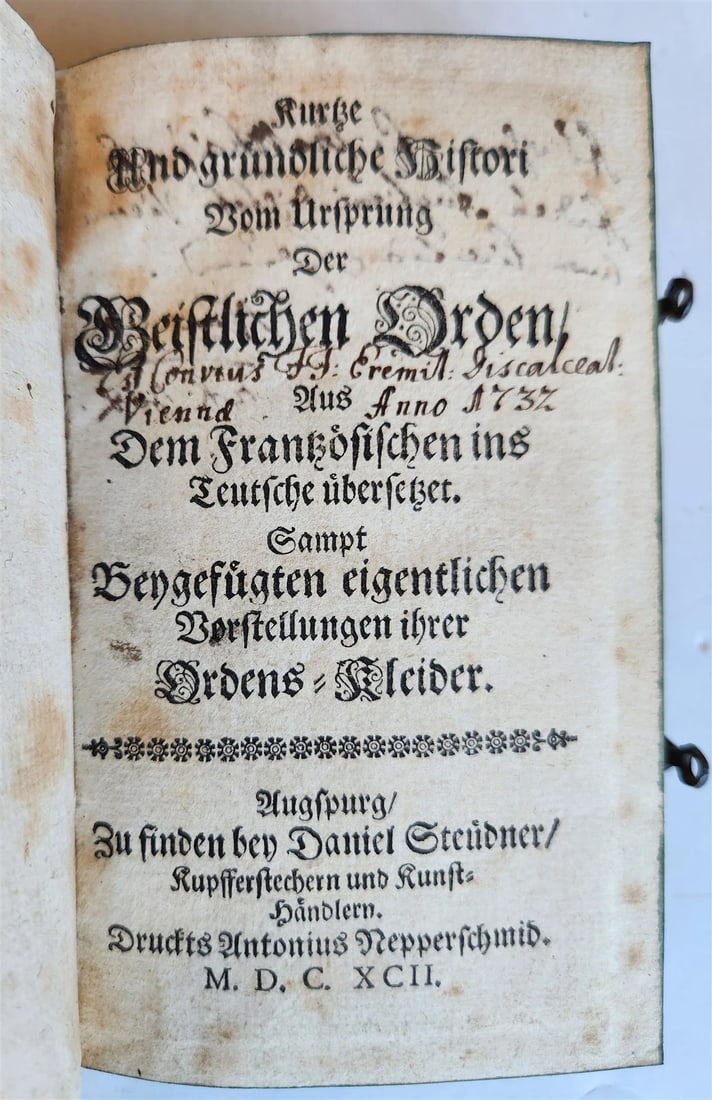 Kurtze
Und gründliche Histori
Vom Ursprung
Der
Geistlichen Orden/
Est Conventus FF: Eremit: Discalceat:
Viennæ Anno 1732
Aus
Dem Frantzösischen ins
Teutsche übersetzet.
Sampt
Beygefügten eigentlichen
Vorstellungen ihrer
Ordens-Kleider.
Augspurg/
Zu finden bey Daniel Steüdner/
Kupfferstechern und Kunst-
Händlern.
Druckts Antonius Nepperschmid.
M. D. C. XCII.